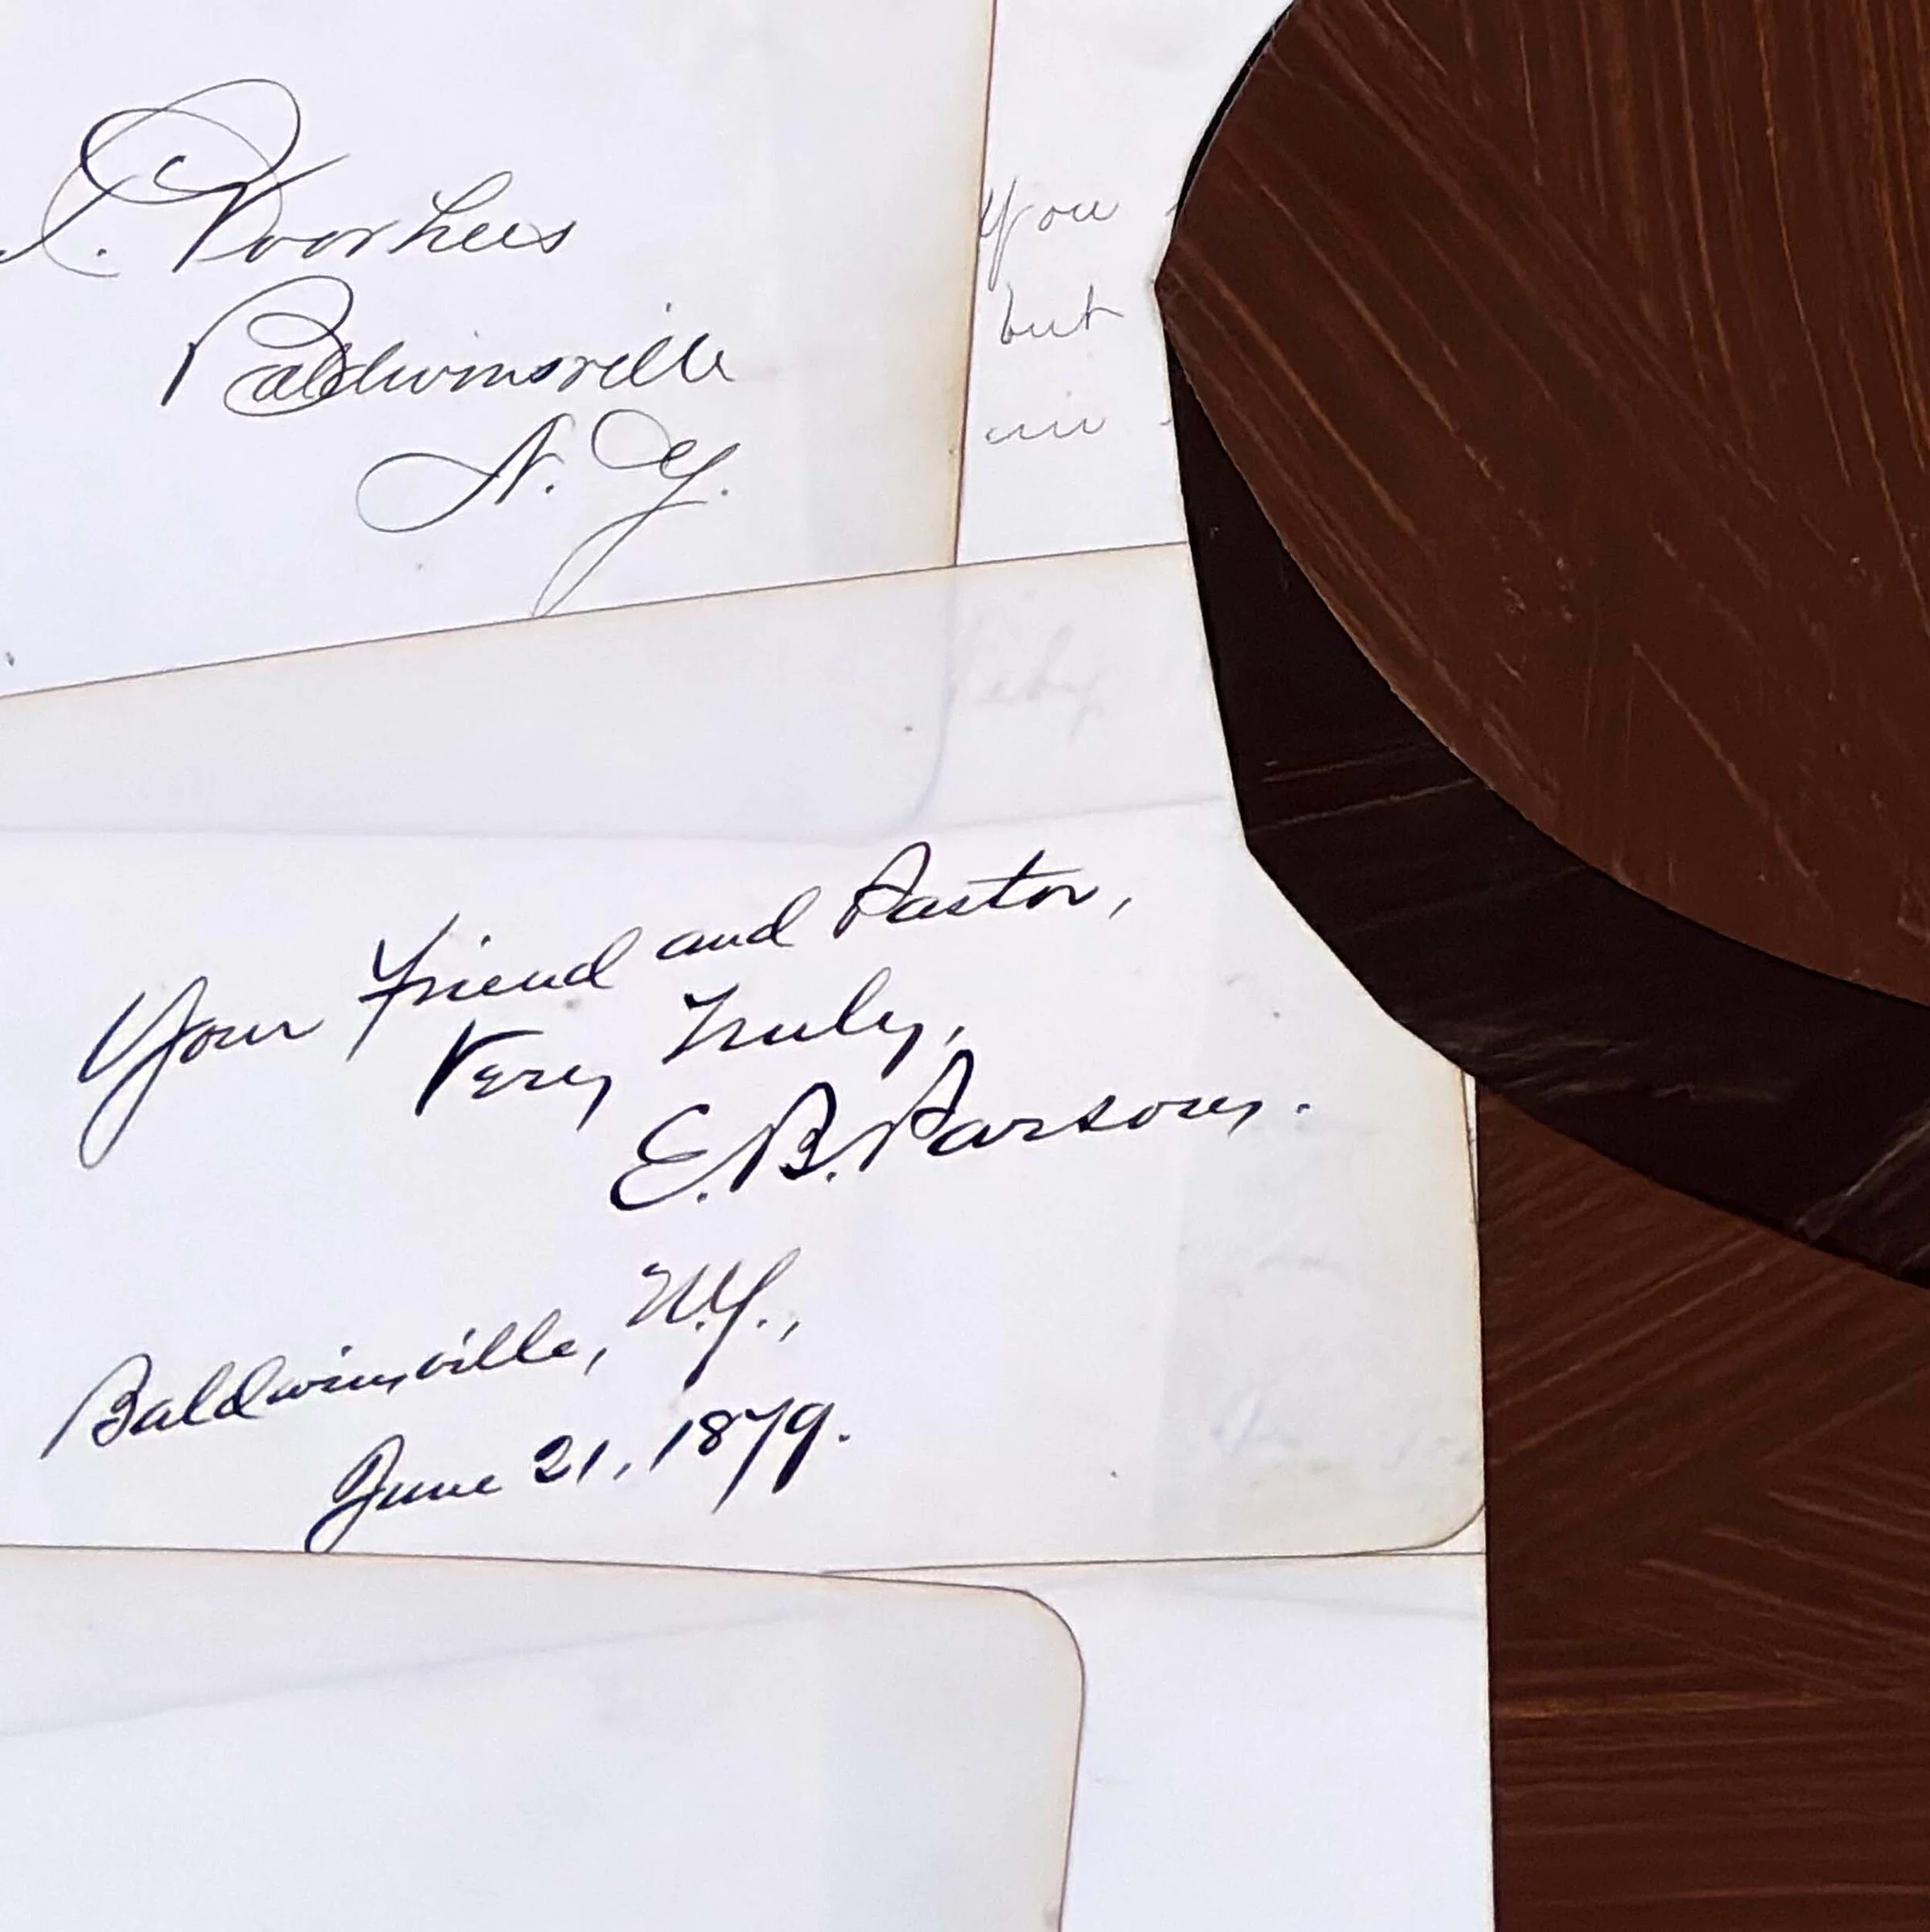 Voorhees
Baldwinsville
N. Y.
You
but
Your Friend and Pastor,
Very Truly,
E. B. Parsons.
Baldwinsville, N.Y.,
June 21, 1879.